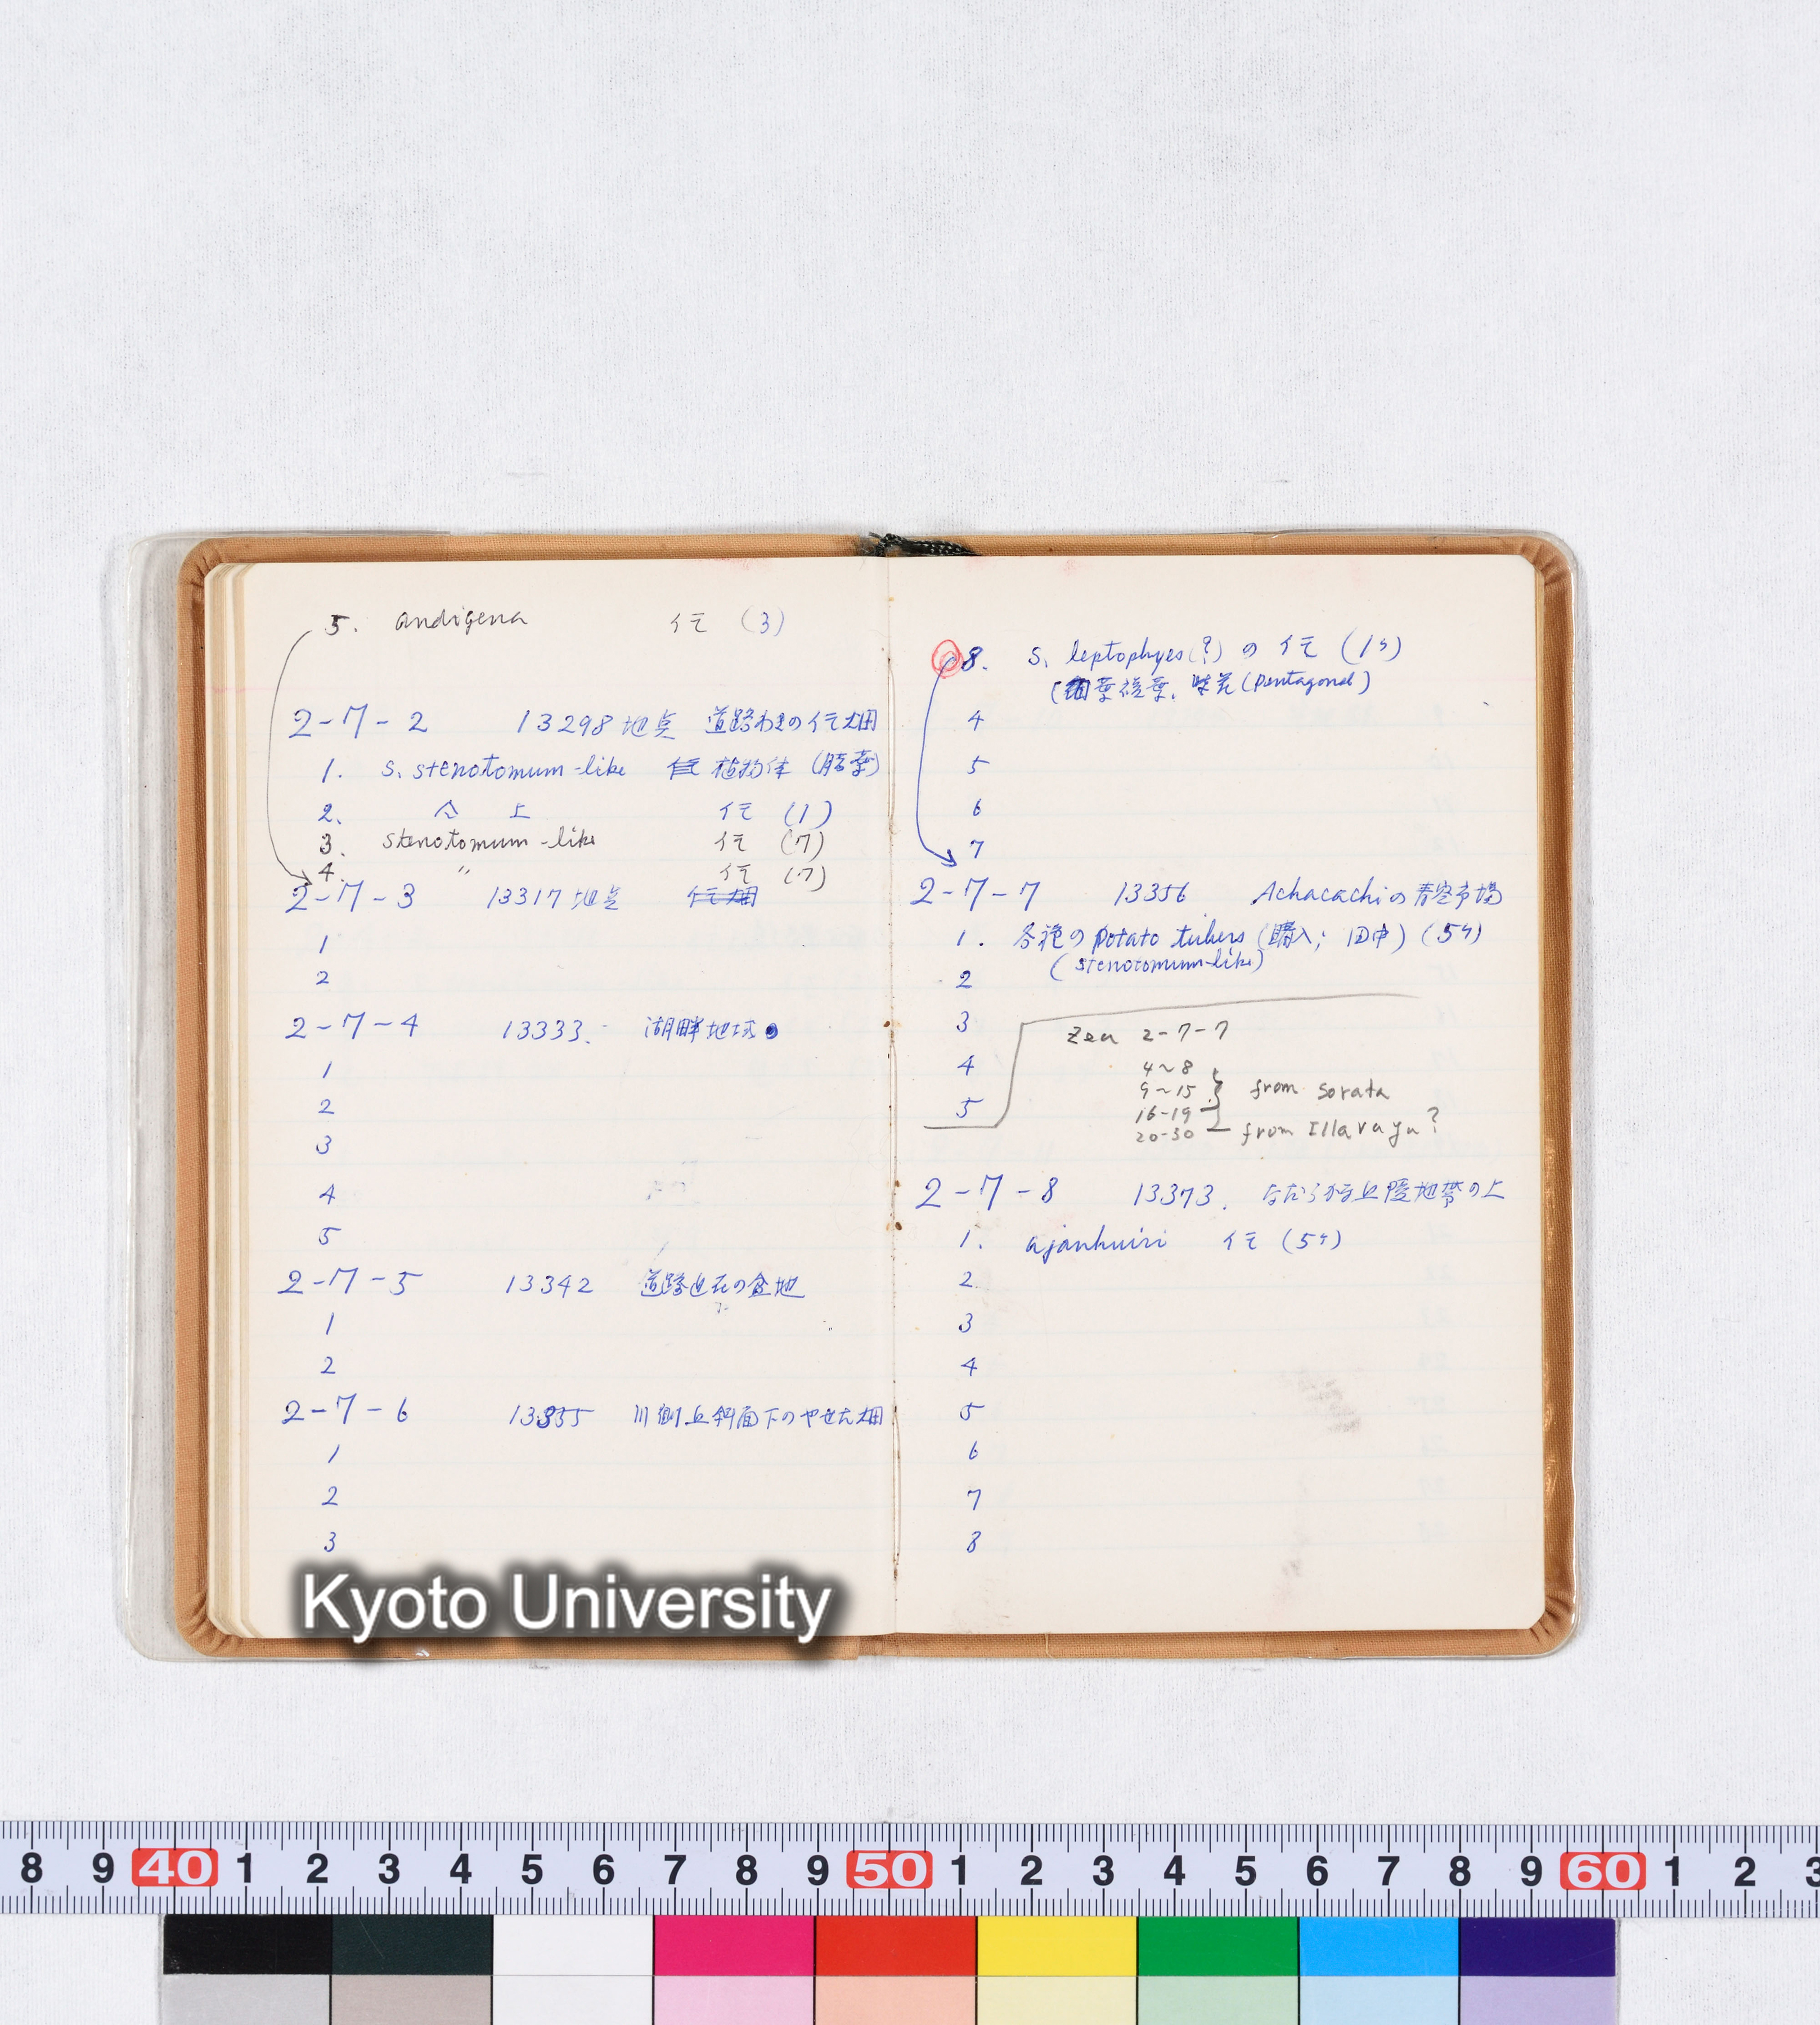 5. andigena イモ (3)
2-7-2 13298地点 道路わきのイモ畑
1. S. stenotomum-like 植物体 (腊葉)
2. 仝 上 イモ (1)
3. stenotomum-like イモ (7)
4. " イモ (7)
2-7-3 13317地点 イモ畑
1
2
2-7-4 13333. 湖畔地域
1
2
3
4
5
2-7-5 13342 道路近在の盆地
1
2
2-7-6 13355 川側丘斜面下のやせた畑
1
2
3
8. S. leptophyes(?) の イモ (1ケ)
(Pentagonal)
4
5
6
7
2-7-7 13356 Achacachiの青空市場
1. 各種の potato tubers (購入; 田中) (5ケ)
(stenotomum-like)
2
3
4
5
Zea 2-7-7
4~8
9~15 from Sorata
16-19
20-30 from Illavaya?
2-7-8 13373. なだらかな丘陵地帯の上
1. ajanhuiri イモ (5ケ)
2.
3
4
5
6
7
8
Kyoto University
8 9 40 1 2 3 4 5 6 7 8 9 50 1 2 3 4 5 6 7 8 9 60 1 2 3